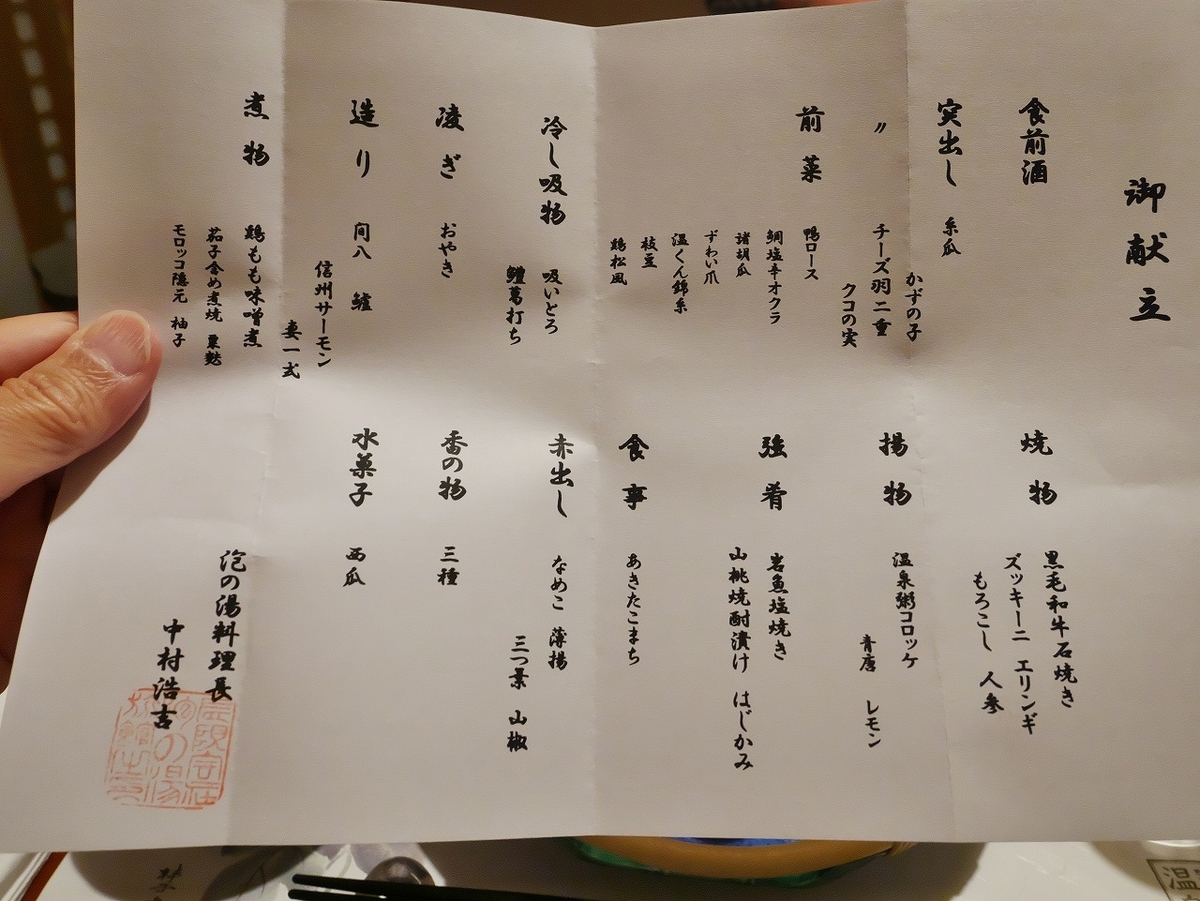 御献立
食前酒
突出し 糸瓜
かずの子
〃 チーズ羽二重
クコの実
前菜 鴨ロース
鯛塩辛オクラ
諸胡瓜
ずわい爪
温くん錦糸
枝豆
鶏松風
冷し吸物 吸いとろ
鱧葛打ち
凌ぎ おやき
造り 間八 鱸
信州サーモン
妻一式
煮物 鶏もも味噌煮
茄子含め煮焼 粟麩
モロッコ隠元 柚子
焼物 黒毛和牛石焼き
ズッキーニ エリンギ
もろこし 人参
揚物 温泉粥コロッケ
青唐 レモン
強肴 岩魚塩焼き
山桃焼酎漬け はじかみ
食事 あきたこまち
赤出し なめこ 薄揚
三つ葉 山椒
香の物 三種
水菓子 西瓜
泡の湯料理長
中村浩吉